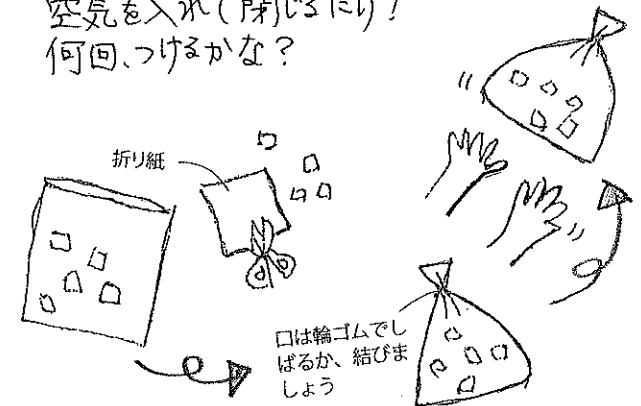 空気を入れて閉じるだけ！
何回、つけるかな？
折り紙
口は輪ゴムでし
ばるか、結びま
しょう